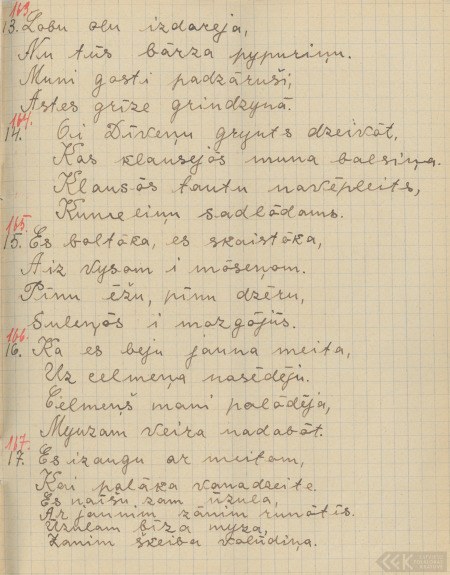 163.
13. Lobu olu izdareja,
Nu tūs bārza pypuriņu.
Muni gosti padzāruši,
Astes grīze grindzynā.
164.
14. Oi Dīveņu gryuts dzeivōt,
Kas klausejōs muna balsiņa.
Klausōs tautu navēpleits,
Kumeliņu sadlōdams.
165.
15. Es boltōka, es skaistōka,
Aiz vysom i mōseņom.
Pīnu ēžu, pīnu dzēru,
Suleņōs i mozgōjūs.
166.
16. Ka es beju jauna meita,
Uz celmeņa nasēdēju.
Celmeņš mani palōdēja,
Myužam veira nadabōt.
167.
17. Es izaugu ar meitom,
Kai palāka vanadzeite.
Es naīšu zam ūzula,
Ar jaunim zānim runōtīs.
Ūzulam bīza myza,
Zanim škeiba volūdiņa.